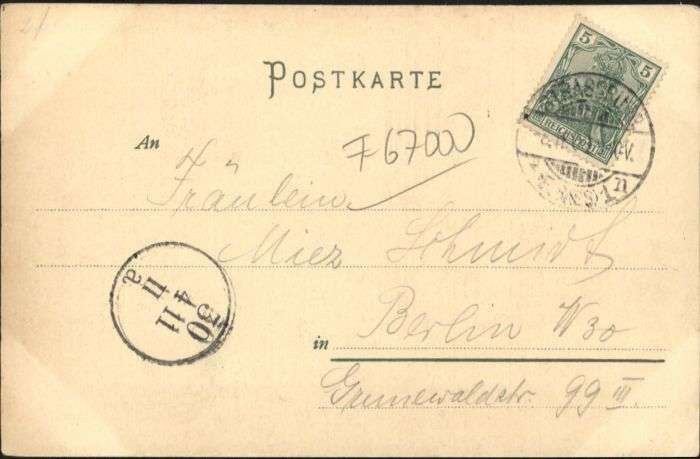 POSTKARTE
5 5
REICHSPOST
STRASSBURG
F 67000
An
Fräulein
Miez Schmidt
in Berlin W30
Grunewaldstr. 99 III
30
4 11
II
a